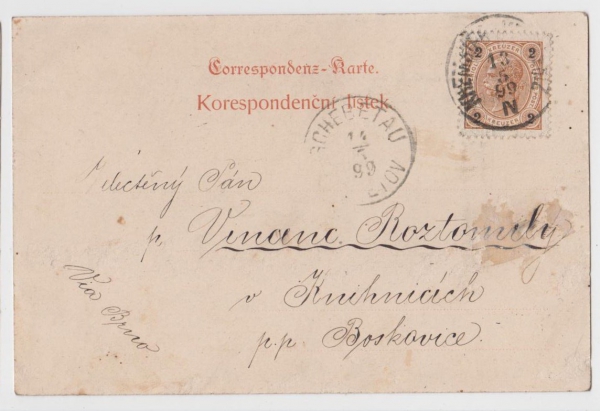 Correspondenz-Karte.
Korespondenční lístek
2 KREUZER 2
13
99
N
2 KREUZER 2
SCHEBETAU
14
99
Velectěný Pán
p. Vincenc Roztomily
v Knihnicích
p.p. Boskovice.
Via Brno